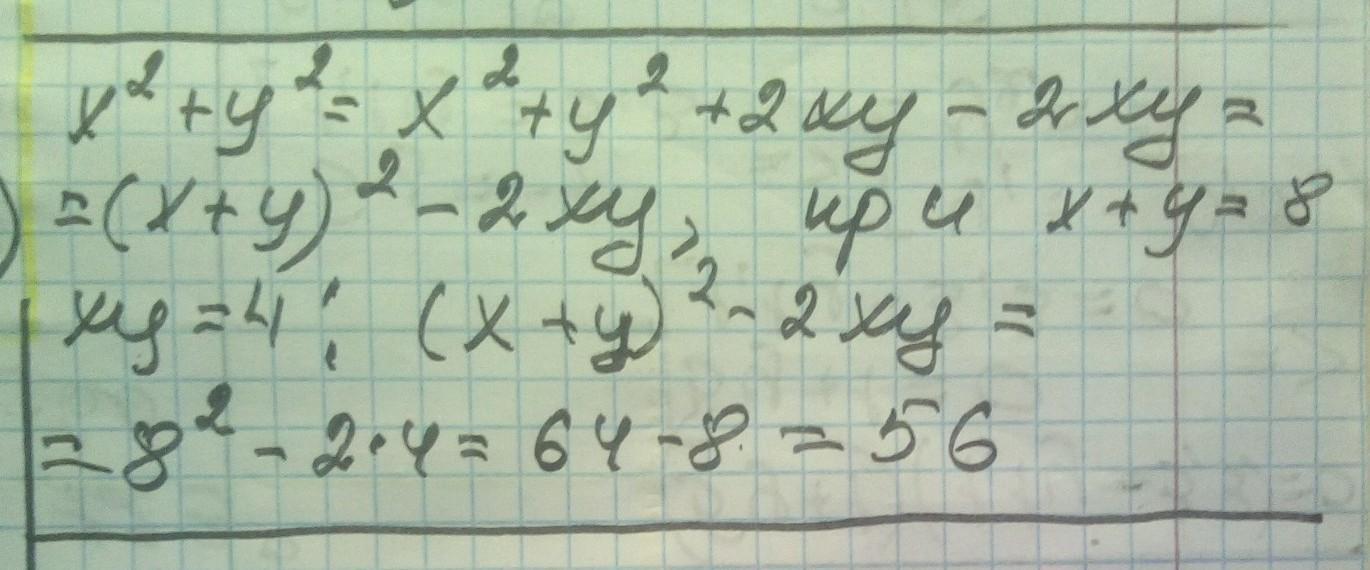 x² + y² = x² + y² + 2xy - 2xy =
= (x + y)² - 2xy, при x + y = 8
xy = 4 : (x + y)² - 2xy =
= 8² - 2·4 = 64 - 8 = 56